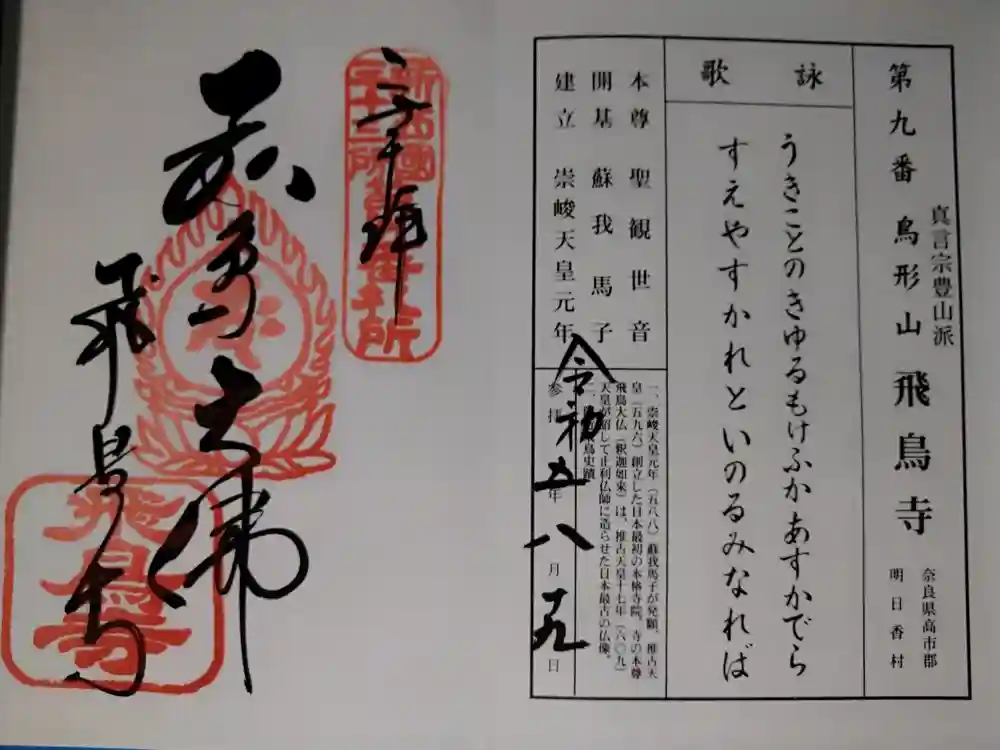 第九番 鳥形山 飛鳥寺
真言宗豊山派
奈良県高市郡
明日香村
詠歌
うきことのきゆるもけふかあすかでら
すえやすかれといのるみなれば
本尊 聖観世音
開基 蘇我馬子
建立 崇峻天皇元年
一、崇峻天皇元年(五八八)蘇我馬子が発願、推古天
皇(五九六)創立した日本最初の本格寺院。寺の本尊
飛鳥大仏(釈迦如来)は、推古天皇十七年(六〇九)
天皇が詔して止利仏師に造らせた日本最古の仏像。
二、飛鳥史蹟
参拝 令和五年八月十九日
奉拝
飛鳥大佛
飛鳥寺
飛鳥寺